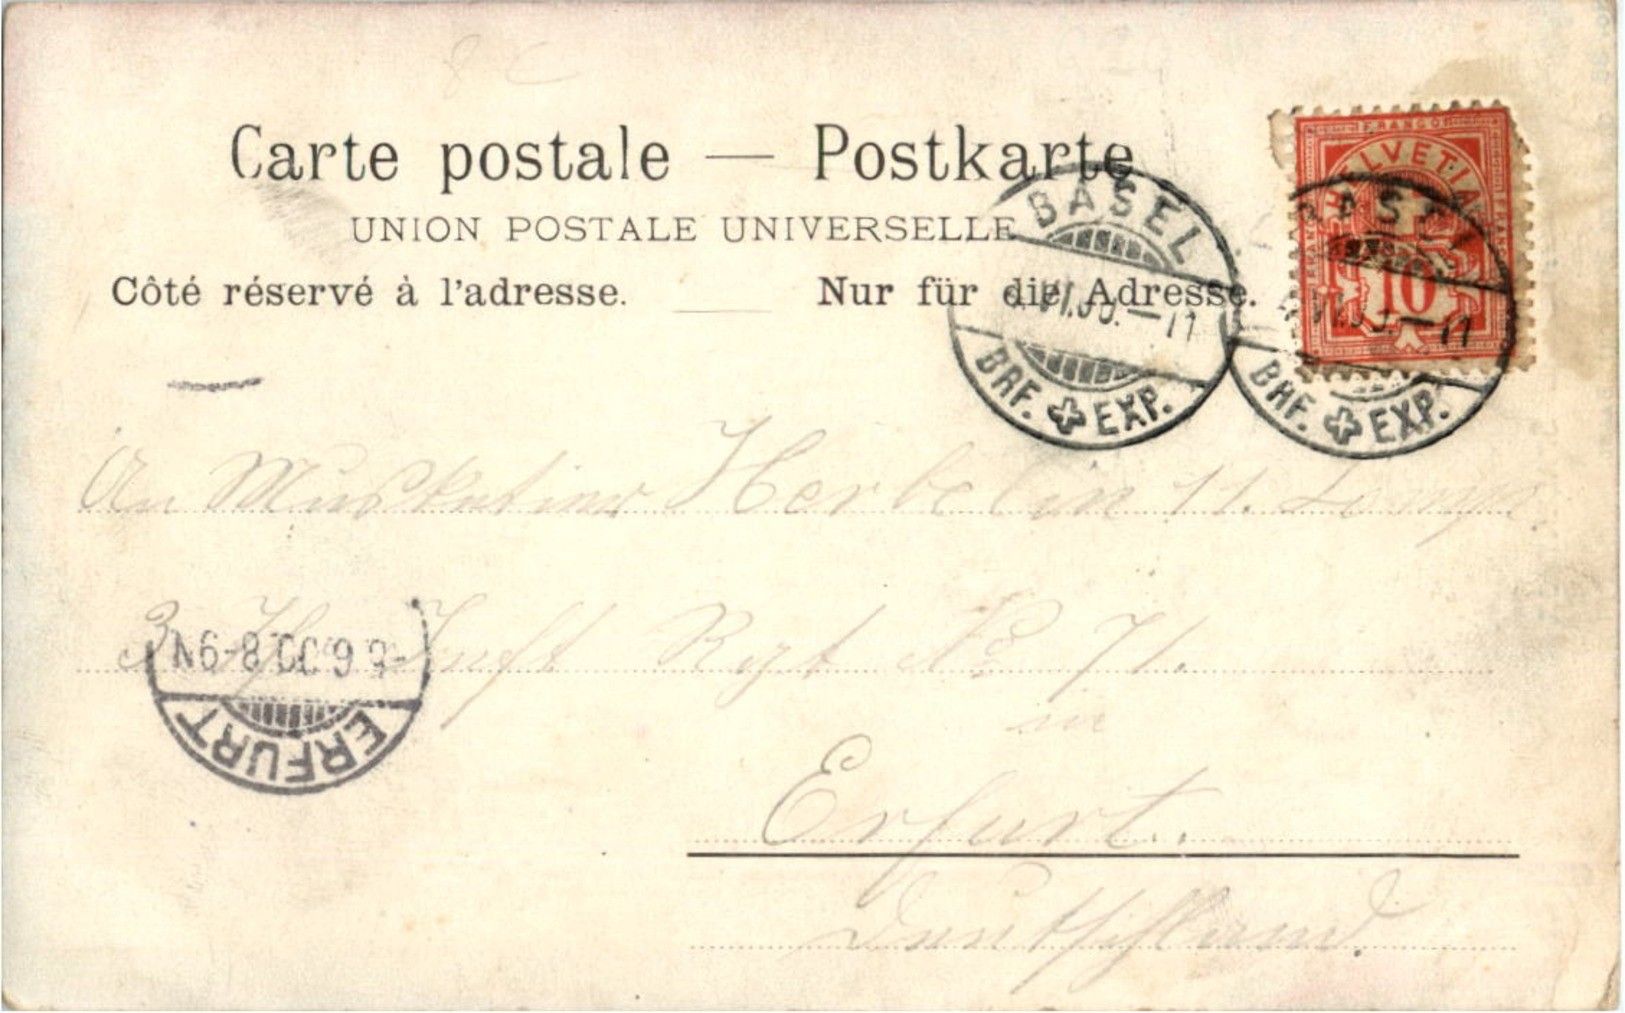 Carte postale — Postkarte
UNION POSTALE UNIVERSELLE
Côté réservé à l'adresse. Nur für die Adresse.
FRANCO
HELVETIA
10
BASEL
VI.00.—11
BRF. EXP.
BASEL
VI.00.—11
BRF. EXP.
An Musketier Herbelin 11. Comp.
Inft Rgt No 71.
in
Erfurt.
Deutschland.
ERFURT
9 6 00 8-9N